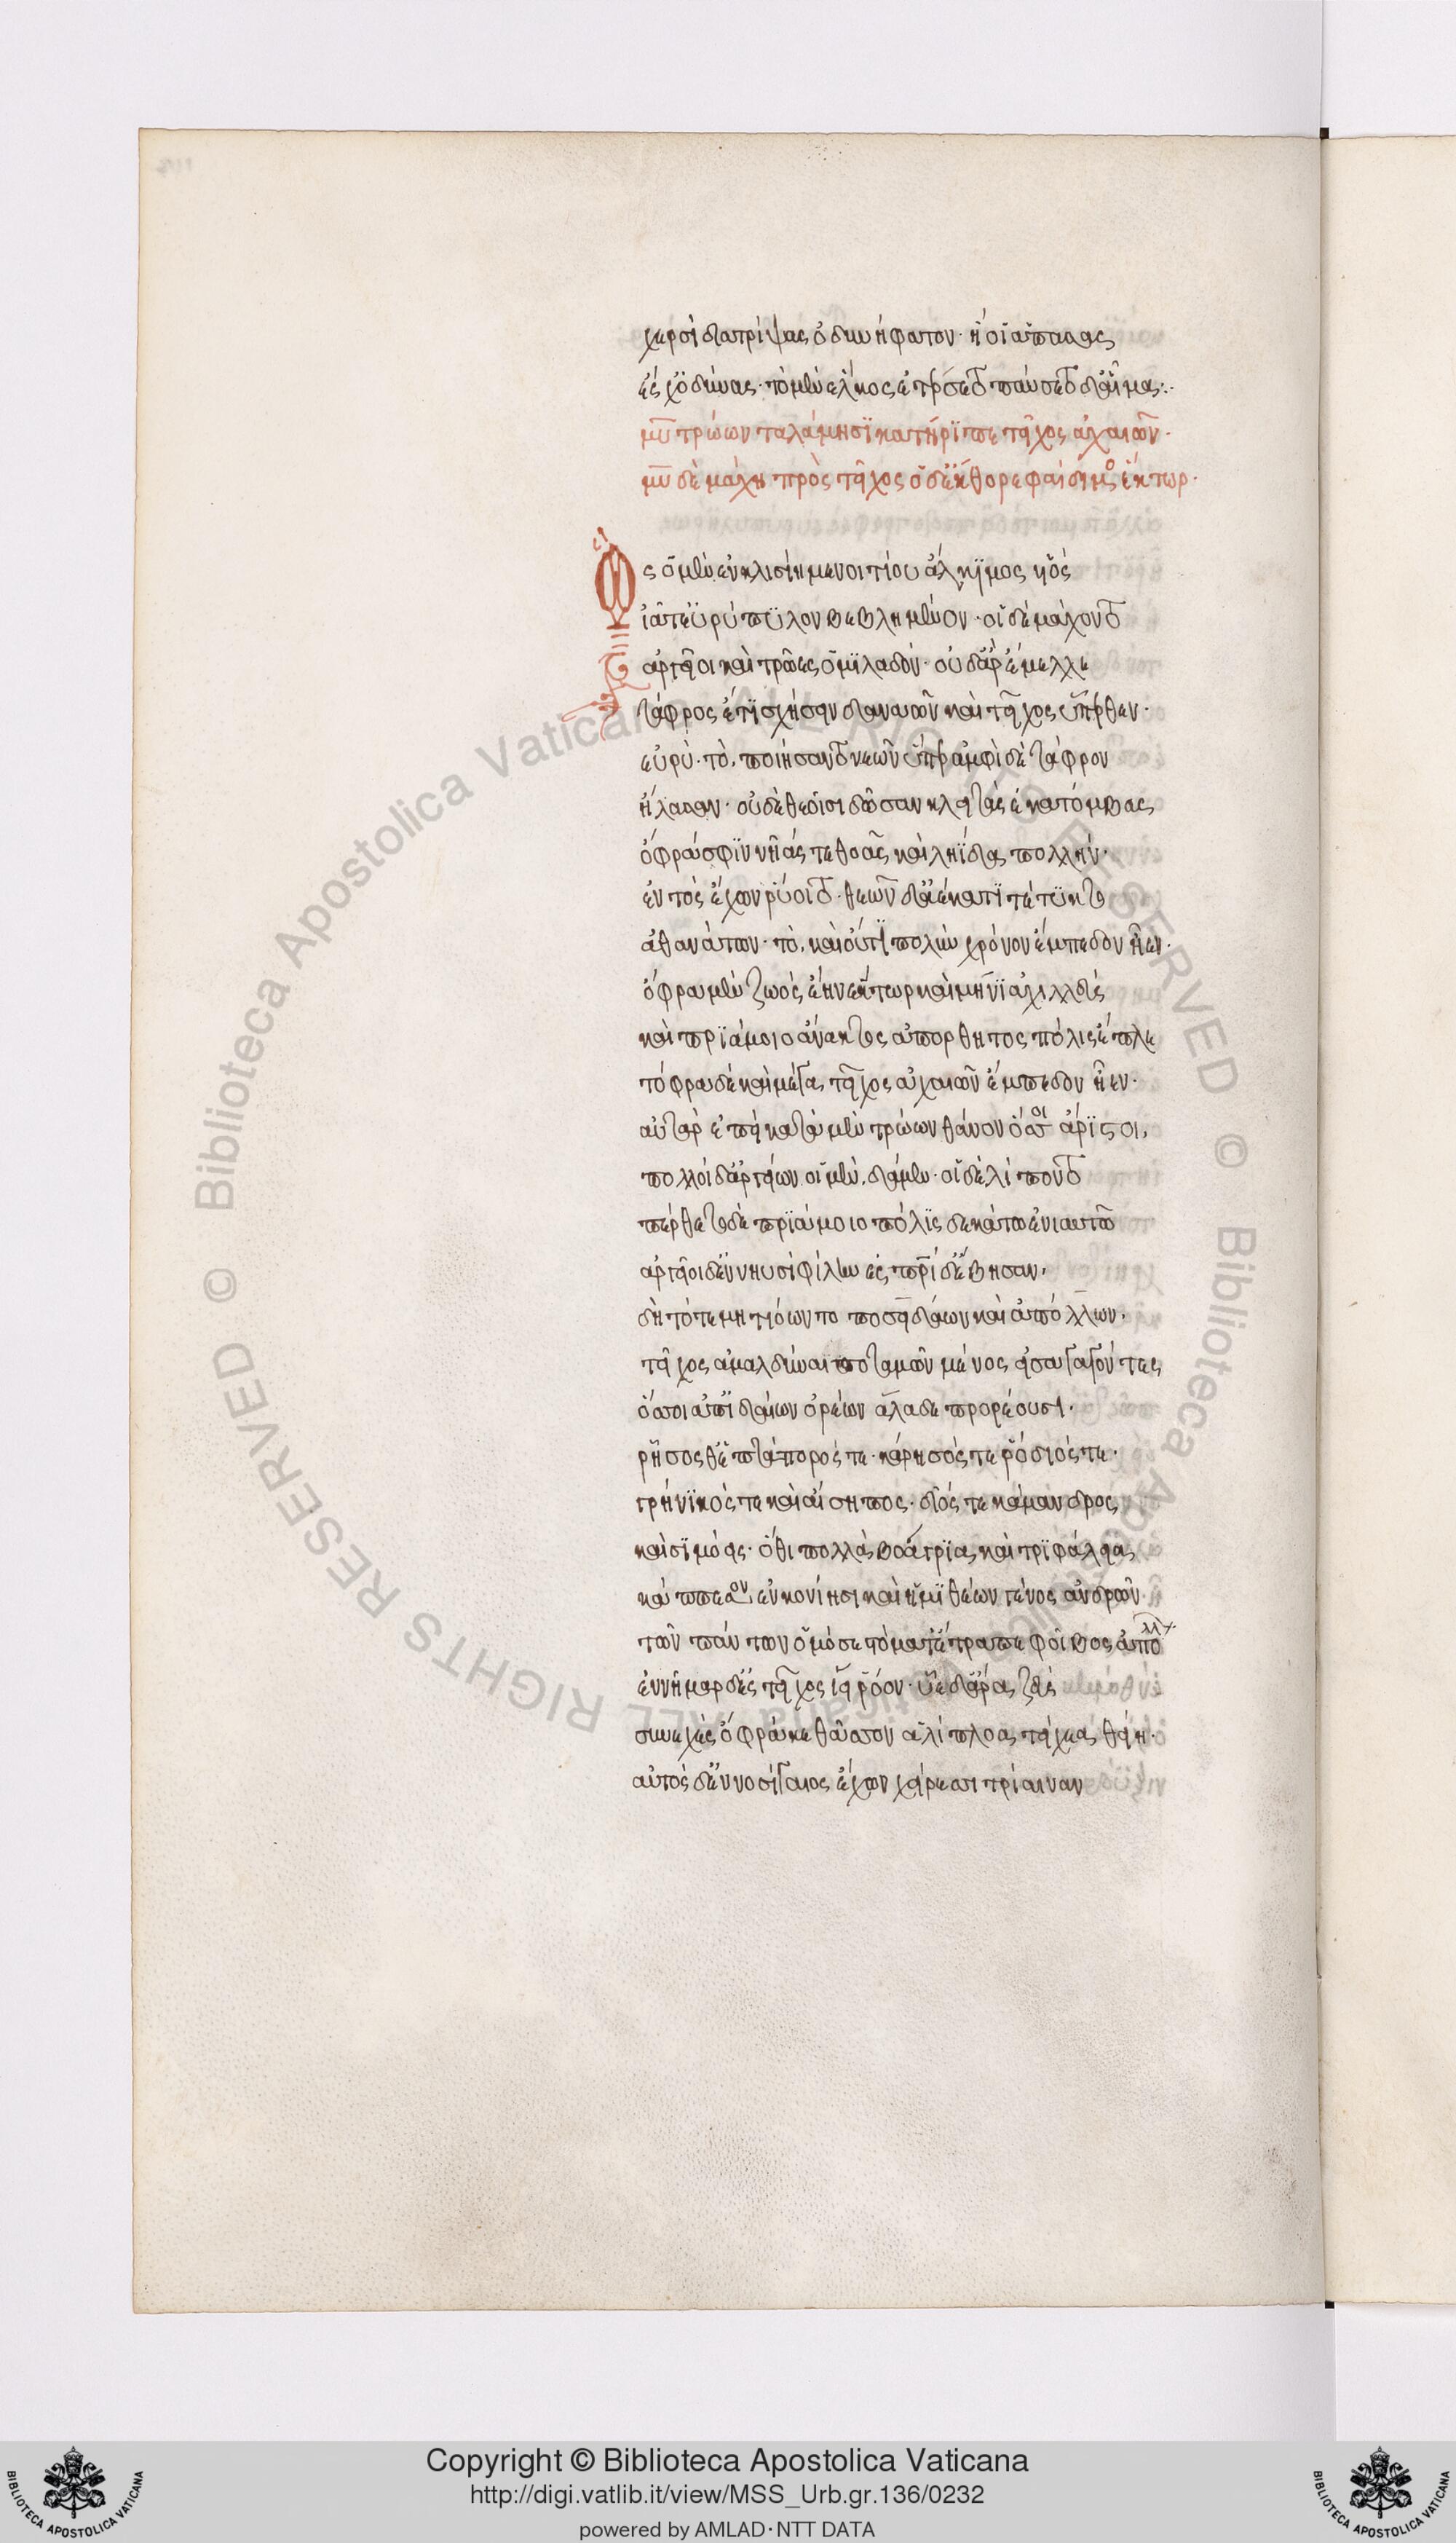 χερσὶ διατρίψας ὀδυνήφατον· ἥ οἱ ἁπάσας
ἔσχ' ὀδύνας· τὸ μὲν ἕλκος ἐτέρσετο παύσατο δ' αἷμα:·
μῦ τρώων παλάμησι κατήριπε τεῖχος ἀχαιῶν·
μῦ δὲ μάχη πρὸς τεῖχος ὁ δ' ἔκθορε φαίδιμος ἕκτωρ·
Ὣς ὁ μὲν ἐν κλισίη μενοιτίου ἄλκιμος υἱὸς
ἰᾶτ' εὐρύπυλον βεβλημένον· οἱ δὲ μάχοντο
ἀργεῖοι καὶ τρῶες ὁμιλαδόν· οὐδ' ἄρ' ἔμελλε
τάφρος ἔτι σχήσειν δαναῶν καὶ τεῖχος ὕπερθεν·
εὐρύ· τὸ ποιήσαντο νεῶν ὕπερ ἀμφὶ δὲ τάφρον
ἤλασαν· οὐδὲ θεοῖσι δῶσαν κλειτὰς ἑκατόμβας
ὄφρα σφιν νῆάς τε θοὰς καὶ ληίδα πολλήν·
ἐντὸς ἔχον ῥύοιτο· θεῶν δ' ἀέκητι τέτυκτο
ἀθανάτων· τὸ, καὶ οὔτι πολὺν χρόνον ἔμπεδον ἦεν·
ὄφρα μὲν ζωὸς ἔην ἕκτωρ καὶ μήνι' ἀχιλλεὺς
καὶ πριάμοιο ἄνακτος ἀπόρθητος πόλις ἔπλε
τόφρα δὲ καὶ μέγα τεῖχος ἀχαιῶν ἔμπεδον ἦεν·
αὐτὰρ ἐπεὶ κατὰ μὲν τρώων θάνον ὅσσοι ἄριστοι,
πολλοὶ δ' ἀργείων οἱ μὲν, δάμεν· οἱ δὲ λίποντο
πέρθετο δὲ πριάμοιο πόλις δεκάτω ἐνιαυτῶ
ἀργεῖοι δ' ἐν νηυσὶ φίλην ἐς πατρίδ' ἔβησαν,
δὴ τότε μητιόωντο ποσειδάων καὶ ἀπόλλων,
τεῖχος ἀμαλδῦναι ποταμῶν μένος εἰσαγαγόντες
ὅσσοι ἀπ' ἰδαίων ὀρέων ἅλαδε προρέουσι·
ῥῆσός θ' ἑπτάπορός τε· κάρησός τε ῥοδίος τε·
γρήνικός τε καὶ αἴσηπος· δῖός τε κάμανδρος
καὶ σιμόεις· ὅθι πολλὰ βοάγρια καὶ τριφάλεια
κάππεσον ἐν κονίησι καὶ ἡμιθέων γένος ἀνδρῶν·
τῶν πάντων ὁμόσε στόματ' ἔτραπε φοῖβος ἀπόλλων
ἐννῆμαρ δ' ἐς τεῖχος ἵει ῥόον· ὗε δ' ἄρα ζεὺς
συνεχὲς ὄφρά κε θᾶσσον ἁλίπλοα τείχεα θείη·
αὐτὸς δ' ἐννοσίγαιος ἔχων χείρεσσι τρίαιναν
Copyright © Biblioteca Apostolica Vaticana
http://digi.vatlib.it/view/MSS_Urb.gr.136/0232
powered by AMLAD·NTT DATA